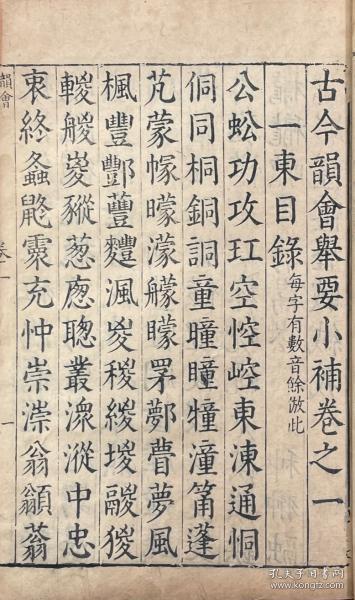 古今韻會舉要小補卷之一
一東目錄 每字有數音餘倣此
公蚣功攻玒空悾崆東涷通恫
侗同桐銅詷童曈瞳犝潼筩蓬
芃蒙幪曚濛艨矇罞鄸瞢夢風
楓豐酆蘴麷渢嵏稷緵堫鬷猣
輚艐嵕豵蔥廒聰叢潨漎中忠
衷終螽鼨霥充忡崇漴翁䈵蓊
韻會
卷一
一
孔夫子旧书网